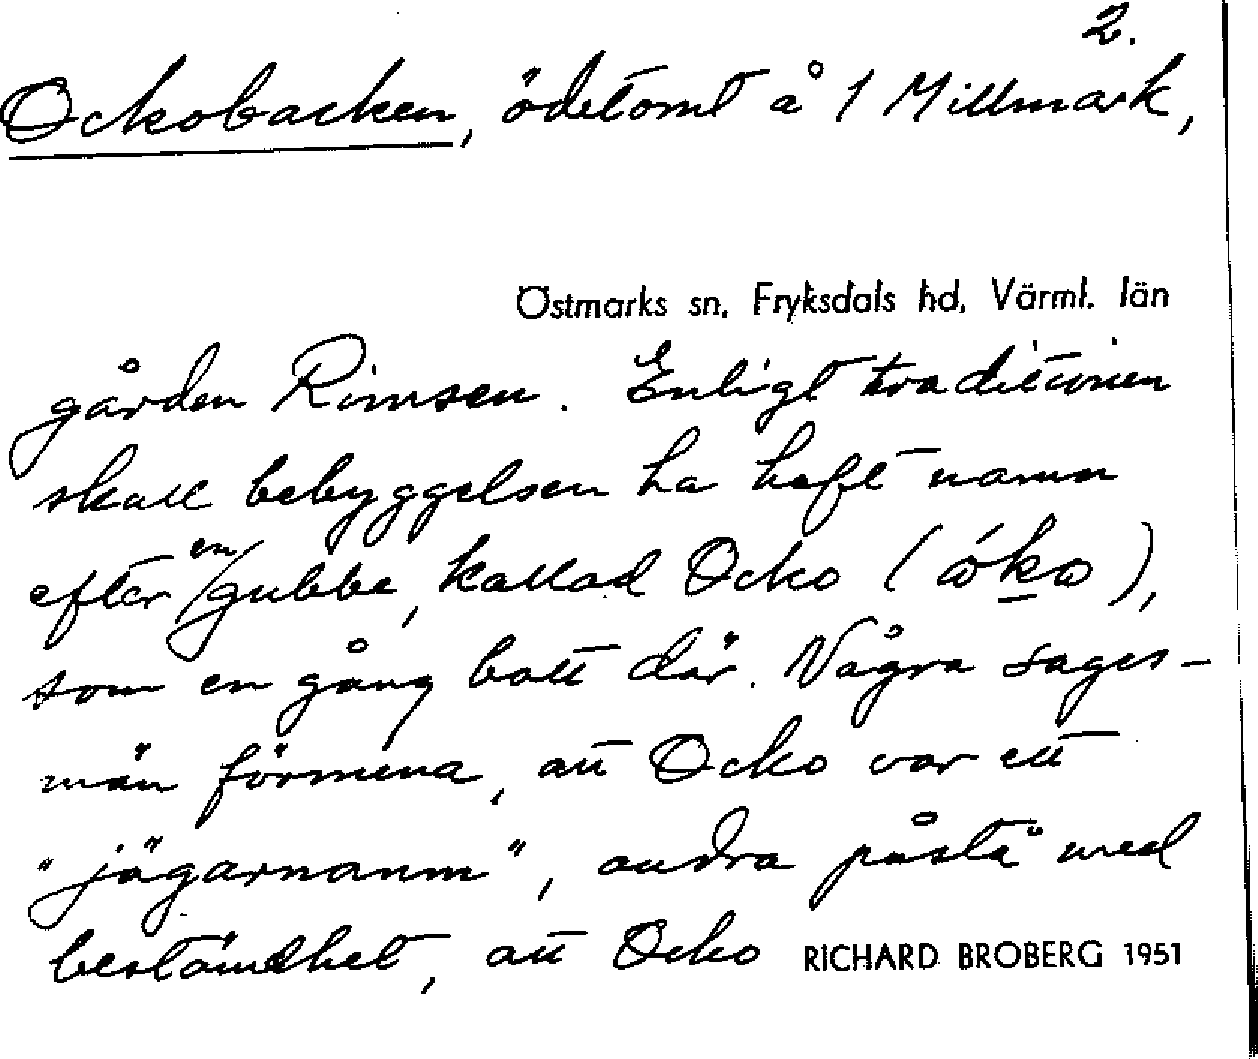 2.
Ockobacken, ödetomt å 1 Millmark,
Östmarks sn, Fryksdals hd, Värml. län
gården Rimsen. Enligt traditionen
skall bebyggelsen ha haft namn
efter en gubbe, kallad Ocko (ókω),
som en gång bott där. Några sages-
män förmena, att Ocko var ett
"jägarnamn", andra påstå med
bestämdhet, att Ocko RICHARD BROBERG 1951